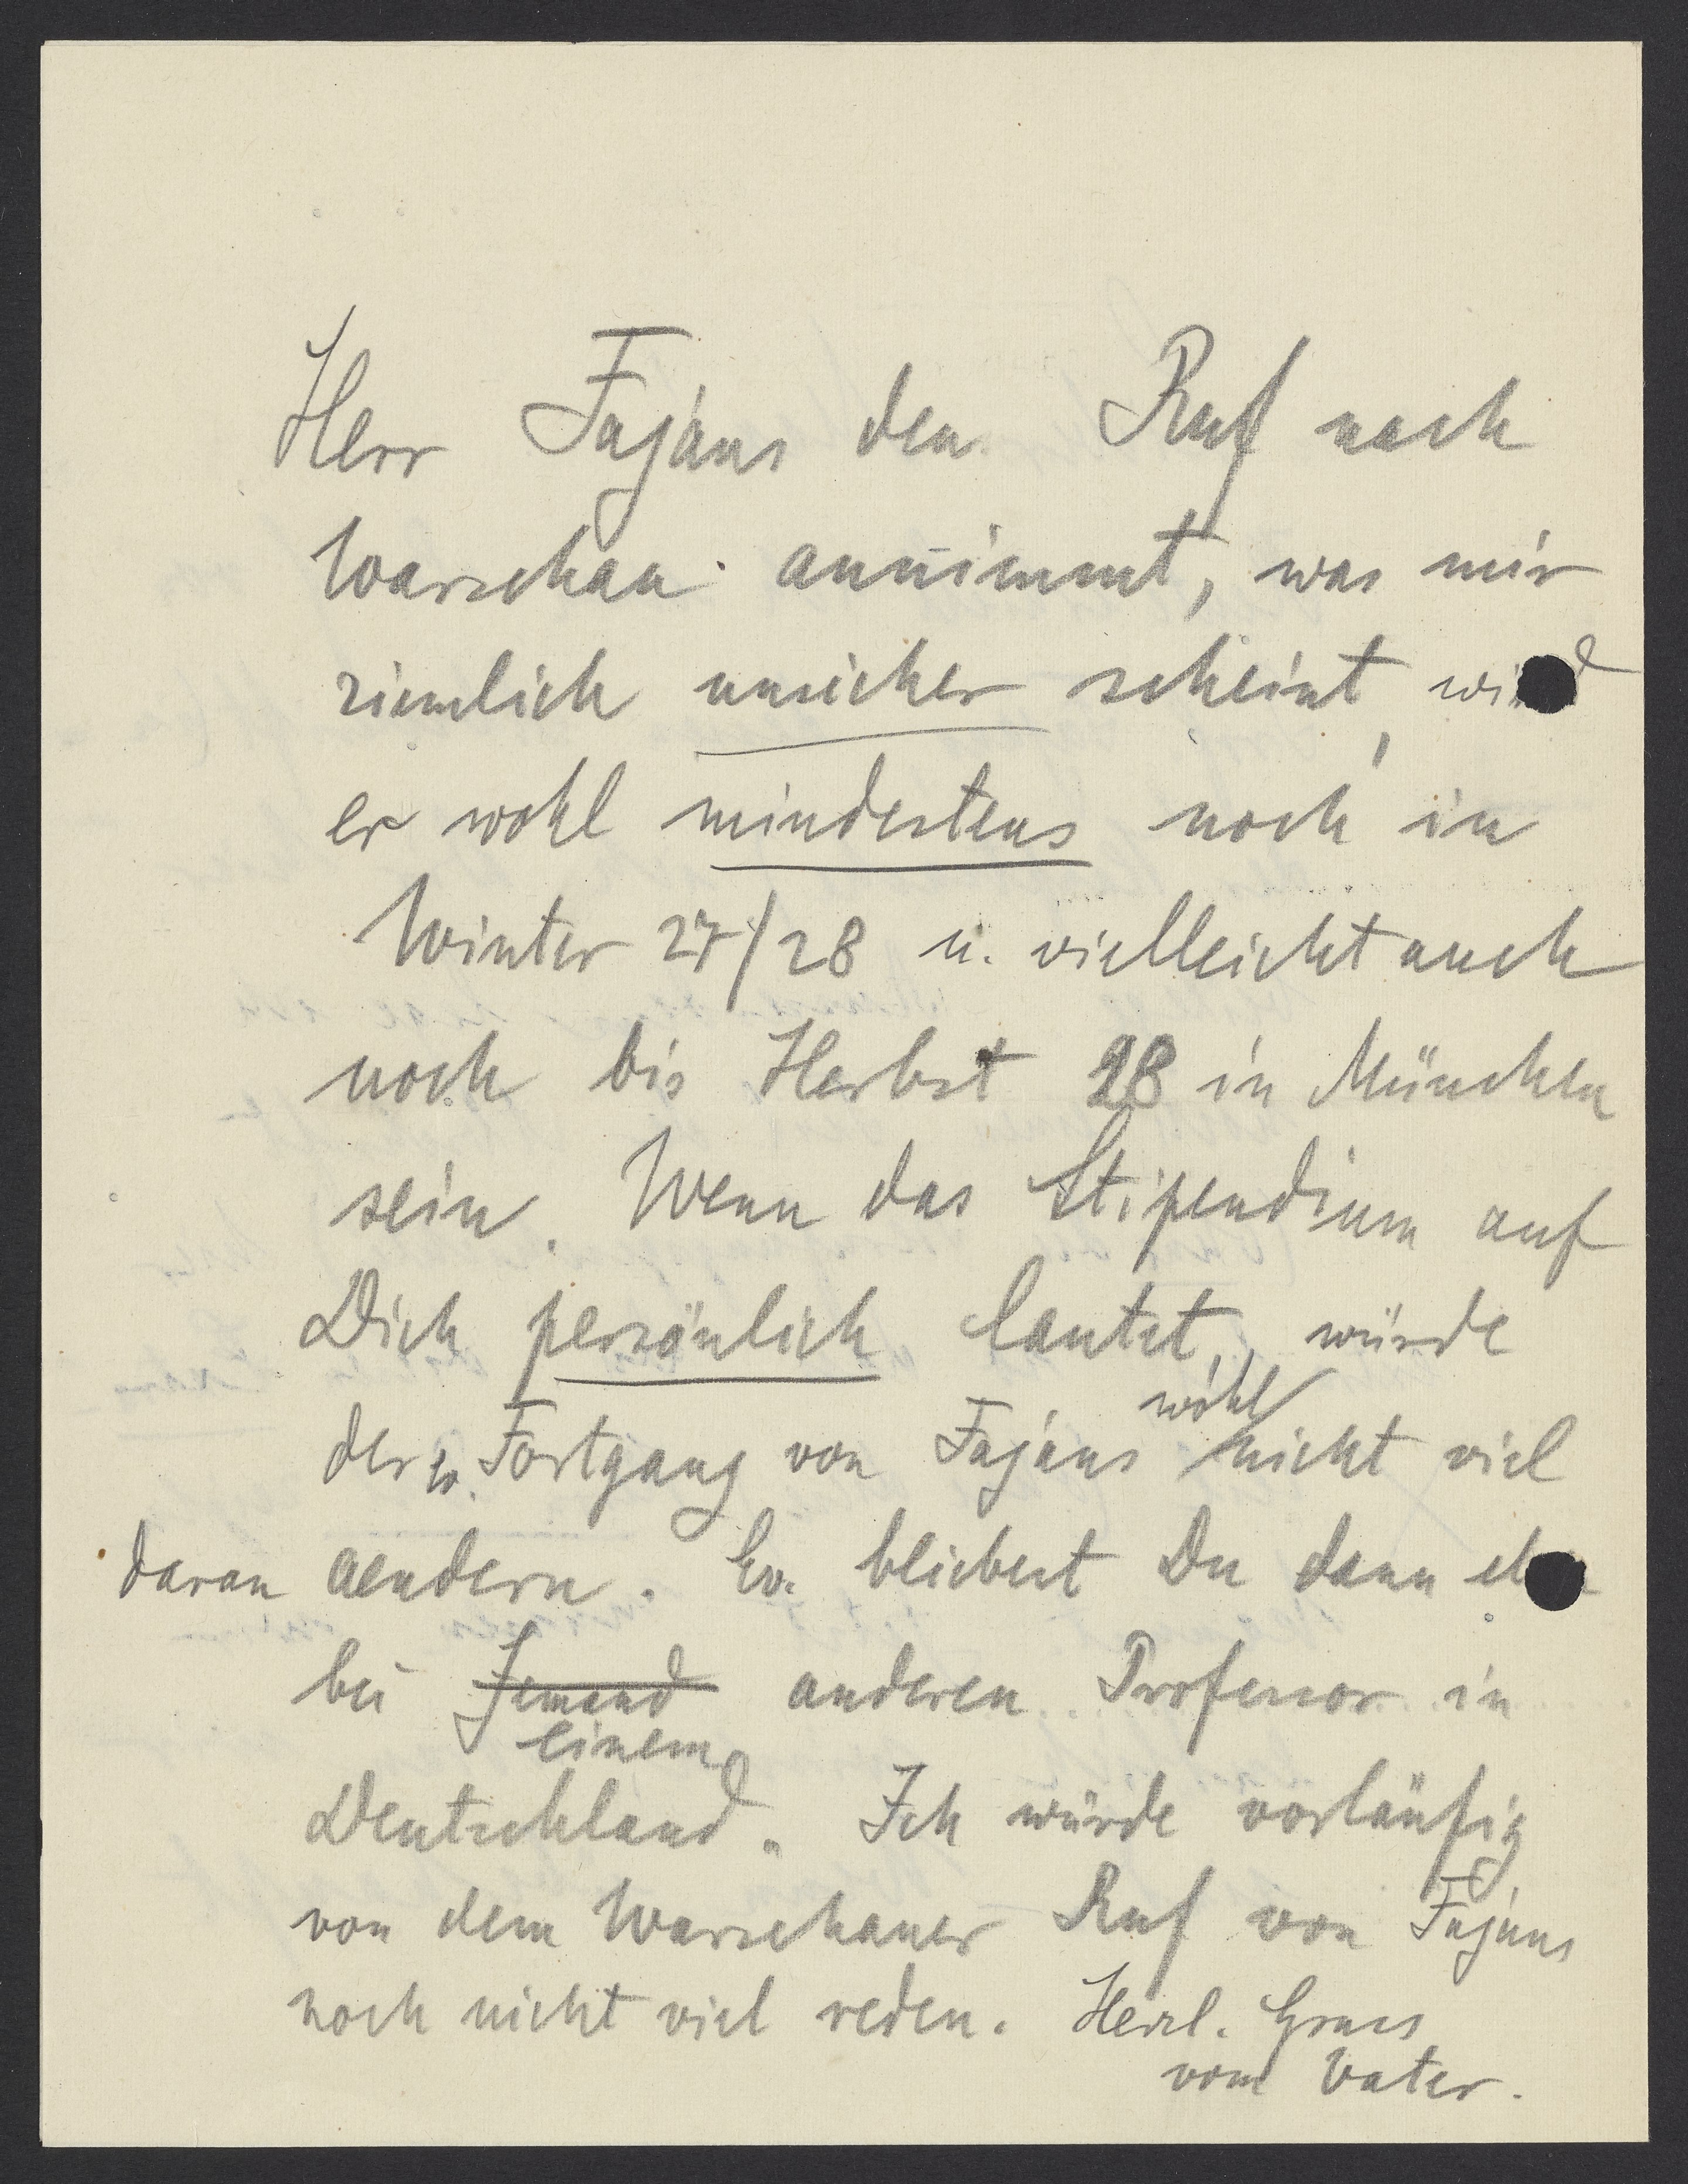 Herr Fajans den Ruf nach
Warschau annimmt, was mir
ziemlich unsicher scheint, wird
er wohl mindestens noch in
Winter 27/28 u. vielleicht auch
noch bis Herbst 28 in München
sein. Wenn das Stipendium auf
Dich persönlich lautet, würde
der ev. Fortgang von Fajans wohl nicht viel
daran aendern. Ev. bliebest Du dann eben
bei Jemand einem anderen Professor in
Deutschland. Ich würde vorläufig
von dem Warschauer Ruf von Fajans
noch nicht viel reden. Herzl. Gruss
vom Vater.